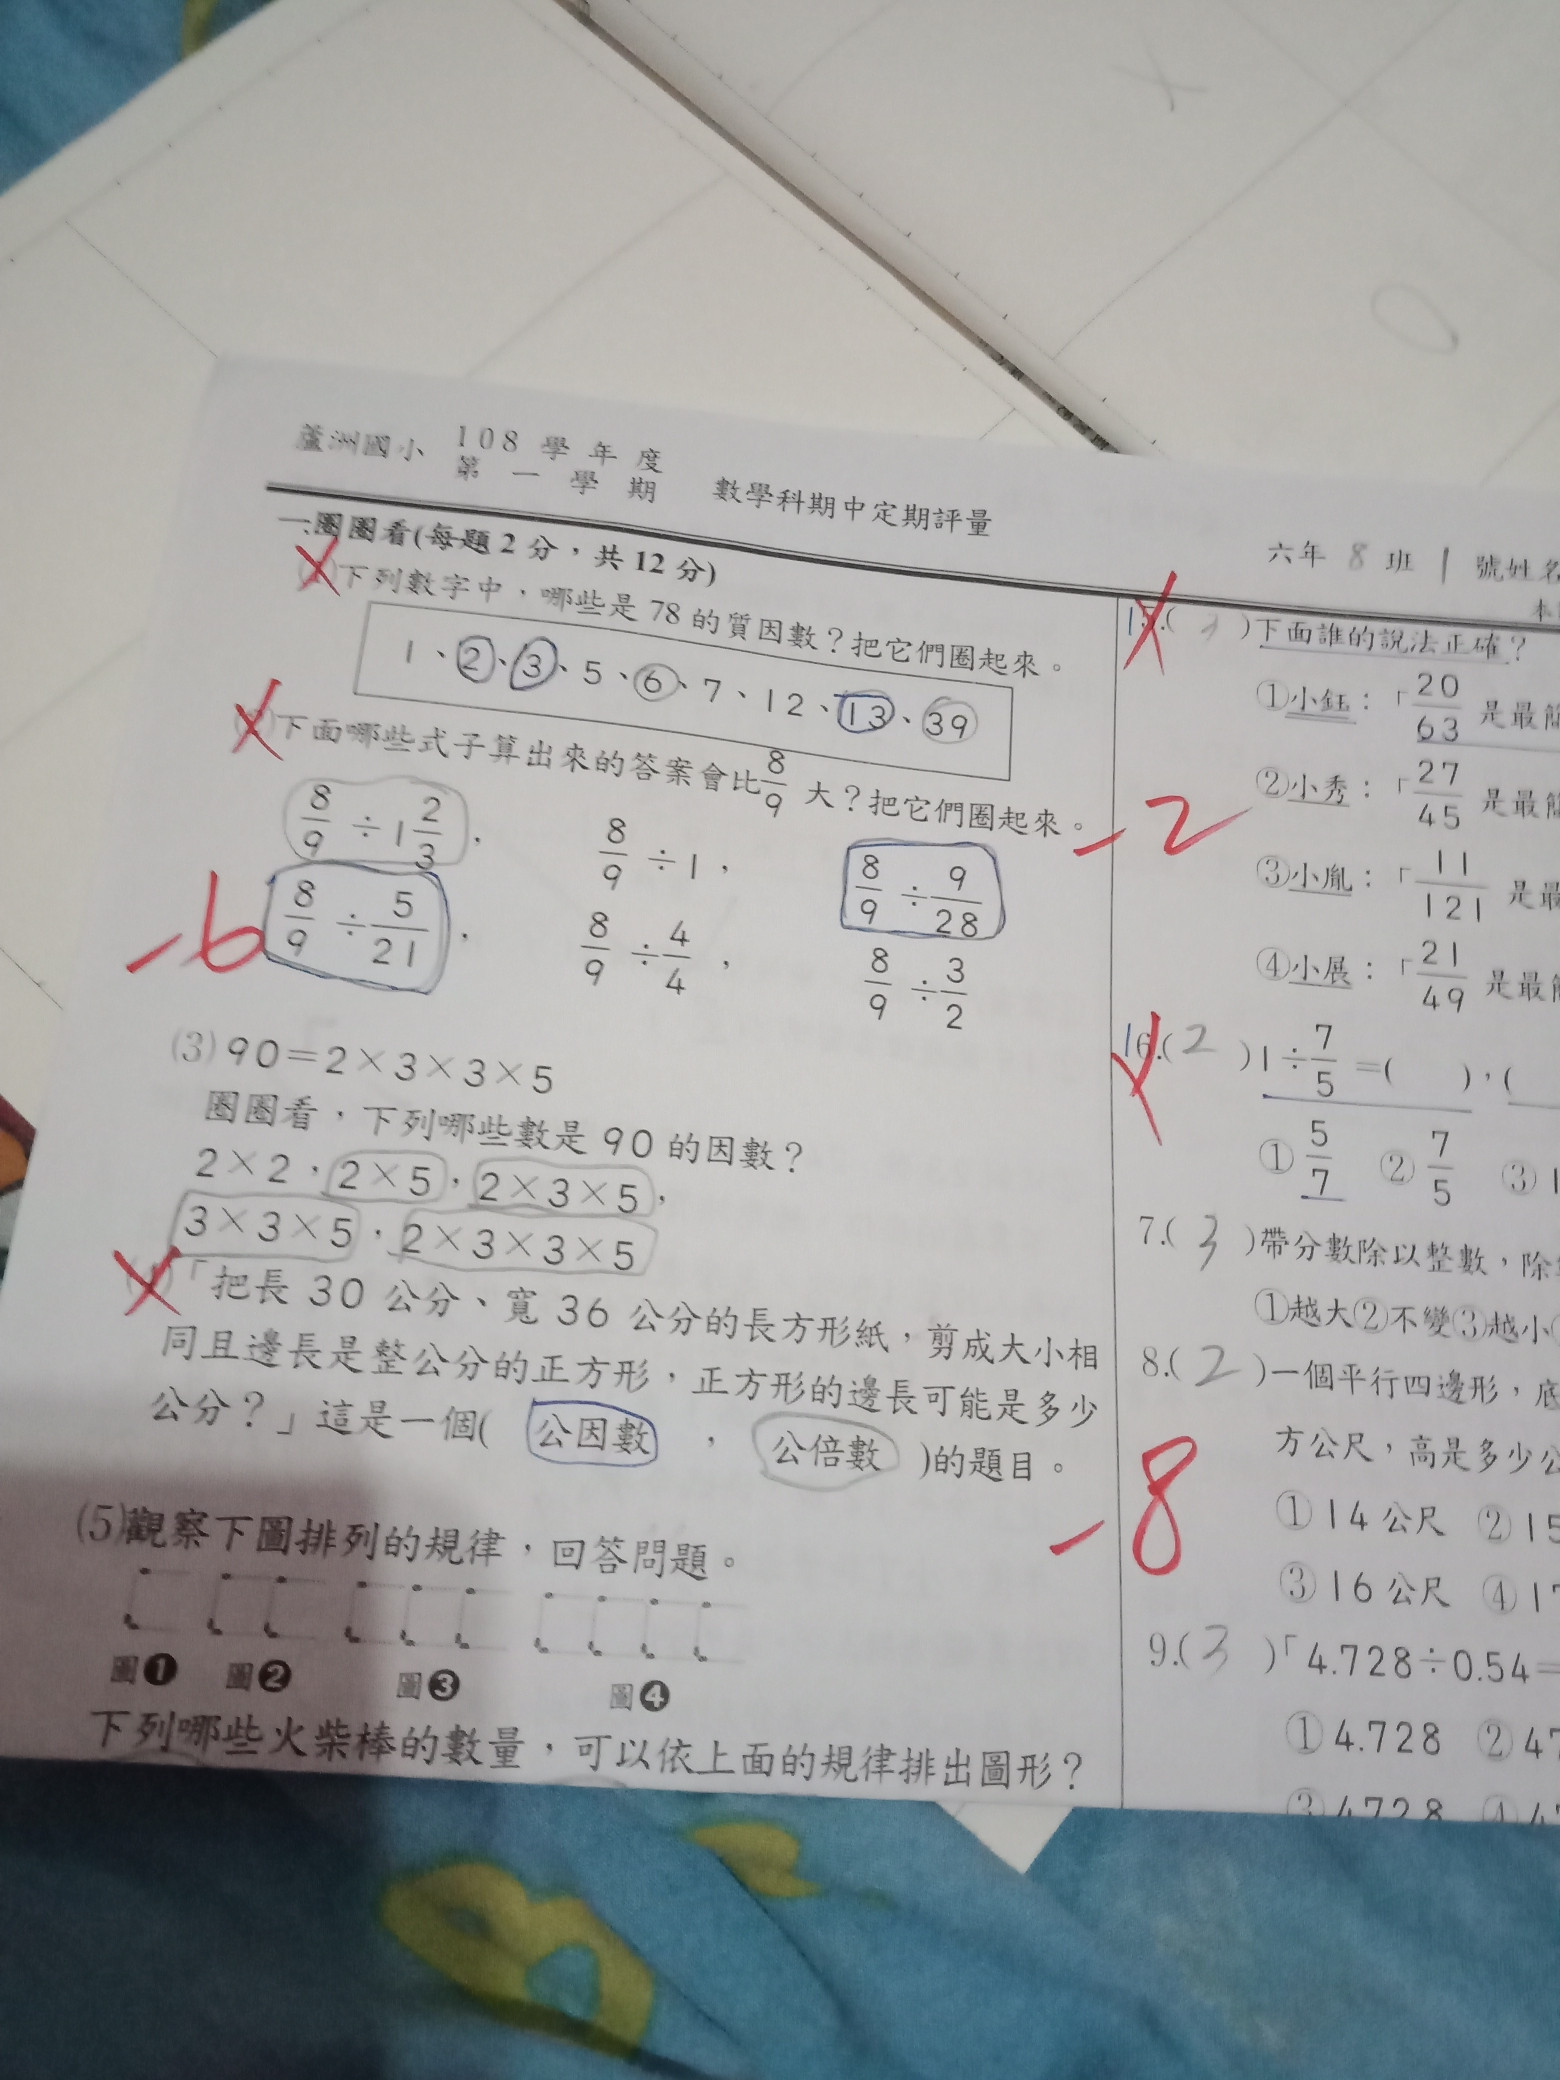 蘆洲國小 108學年度 第一學期 數學科期中定期評量
六年 8 班 1 號姓名
一.圈圈看(每題2分,共12分)
下列數字中,哪些是78的質因數?把它們圈起來。
1、2、3、5、6、7、12、13、39
下面哪些式子算出來的答案會比8/9大?把它們圈起來。
8/9÷1 2/3, 8/9÷1, 8/9÷9/28
8/9÷5/21, 8/9÷4/4, 8/9÷3/2
-6
(3)90=2×3×3×5
圈圈看,下列哪些數是90的因數?
2×2,2×5,2×3×5,
3×3×5,2×3×3×5
「把長30公分、寬36公分的長方形紙,剪成大小相
同且邊長是整公分的正方形,正方形的邊長可能是多少
公分?」這是一個( 公因數 , 公倍數 )的題目。
(5)觀察下圖排列的規律,回答問題。
圖❶ 圖❷ 圖❸ 圖❹
下列哪些火柴棒的數量,可以依上面的規律排出圖形?
本
15.( )下面誰的說法正確?
①小鈺:「20/63 是最簡
②小秀:「27/45 是最簡
-2
③小胤:「11/121 是最
④小展:「21/49 是最簡
16.( 2 )1÷7/5=( ),(
①5/7 ②7/5 ③1
7.( 3 )帶分數除以整數,除
①越大②不變③越小
8.( 2 )一個平行四邊形,底
方公尺,高是多少公
-8
①14公尺 ②15
③16公尺 ④17
9.( 3 )「4.728÷0.54=
①4.728 ②47
③4728 ④47